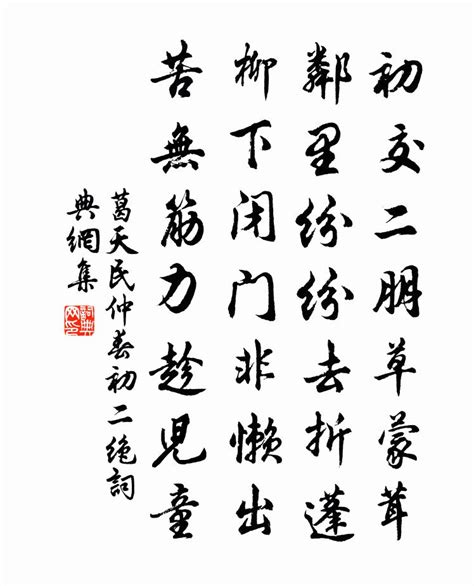 初交二朋草蒙茸
鄰里紛紛去折蓬
柳下闭门非懒出
苦無筋力趁児童
葛天民仲春初二絶詞
典網集
詞典
网印